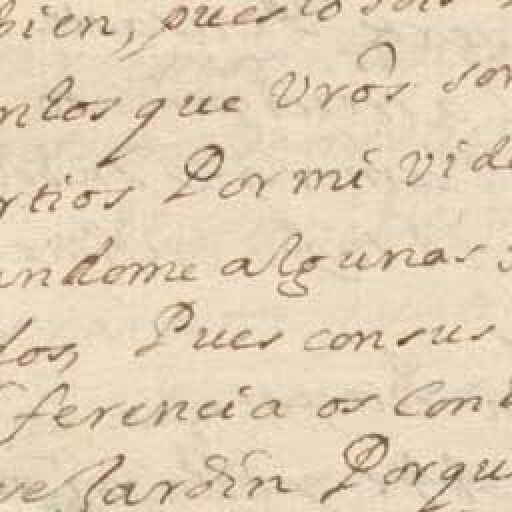 bien, puesto
ntos que Vrôs son
rtios Por mi vida
andome algunas
dos, Pues con sus
ferencia os con
ve Jardin Porqu